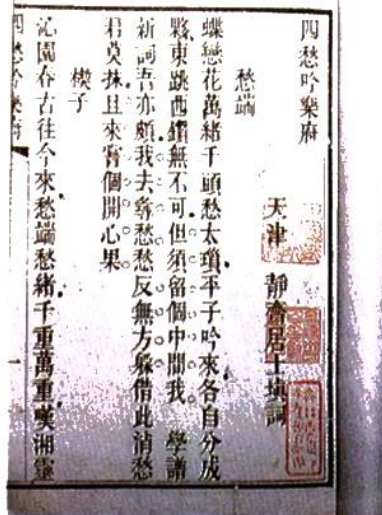 四愁吟樂府
天津 靜齋居士填詞
愁端
蝶戀花萬緒千頭愁太瑣平子吟來各自分成
夥東跳西鑽無不可但須留個中間我 學譜
新詞吾亦頗我去尋愁愁反無方躲借此消愁
君莫抹且來嘗個開心果
楔子
沁園春古往今來愁端愁緒千重萬重嘆湘靈
四愁吟樂府
一